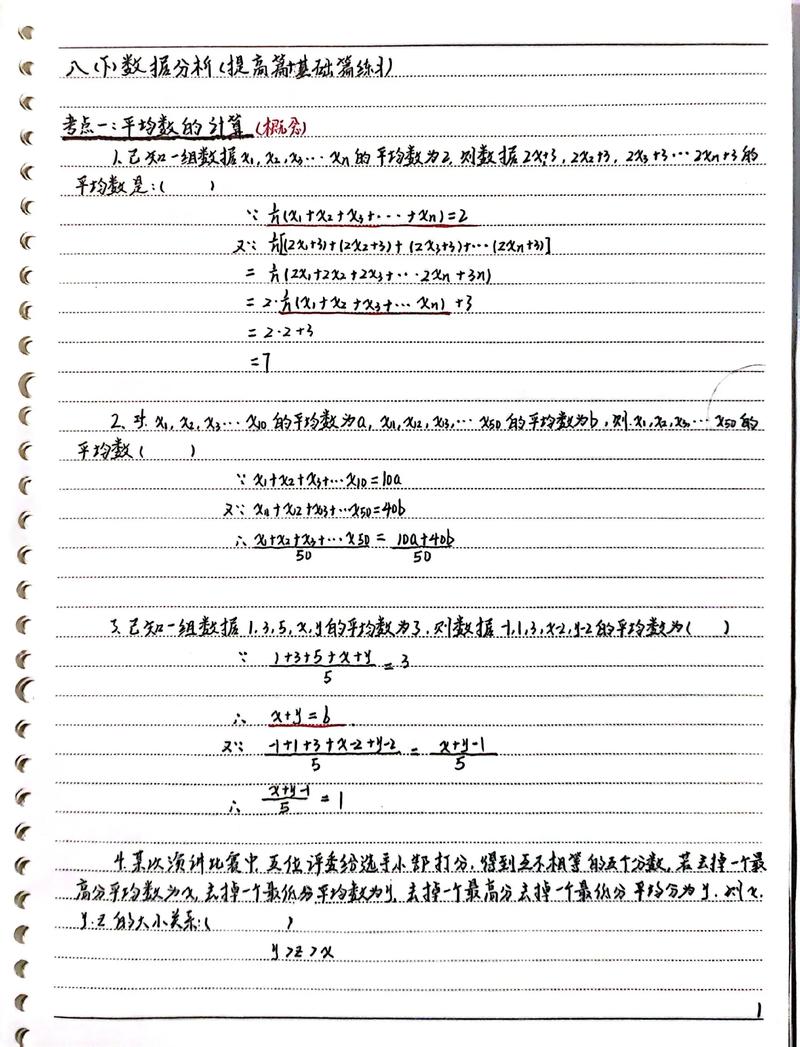 八(下)数据分析(提高篇+基础篇练习)
考点一:平均数的计算 (概念)
1.已知一组数据x₁,x₂,x₃…xn的平均数为2,则数据2x+3,2x₂+3,2x₃+3…2xn+3的
平均数是:( )
∵ 1/n(x₁+x₂+x₃+…+xn)=2
又∵ 1/n[(2x₁+3)+(2x₂+3)+(2x₃+3)+…(2xn+3)]
= 1/n(2x₁+2x₂+2x₃+…2xn+3n)
=2·1/n(x₁+x₂+x₃+…xn)+3
=2·2+3
=7
2、对.x₁,x₂,x₃…x₁₀的平均数为a,x₁₁,x₁₂,x₁₃,…x₅₀的平均数为b,则.x₁,x₂,x₃,…x₅₀的
平均数( )
∵ x₁+x₂+x₃+…x₁₀=10a
又∵ x₁₁+x₁₂+x₁₃+…x₅₀=40b
∴ (x₁+x₂+x₃+…x₅₀)/50=(10a+40b)/50
3、已知一组数据1,3,5,x,y的平均数为3,则数据-1,1,3,x-2,y-2的平均数为( )
∵ (1+3+5+x+y)/5=3
∴ x+y=6
又∵ (-1+1+3+x-2+y-2)/5=(x+y-1)/5
∴ (x+y-1)/5=1
4.某次演讲比赛中,五位评委给选手小 打分,得到互不相等的五个分数,若去掉一个最
高分平均数为x,去掉一个最低分平均数为y,去掉一个最高分去掉一个最低分平均分为y.则x.
y.z的大小关系:( )
y>z>x
1